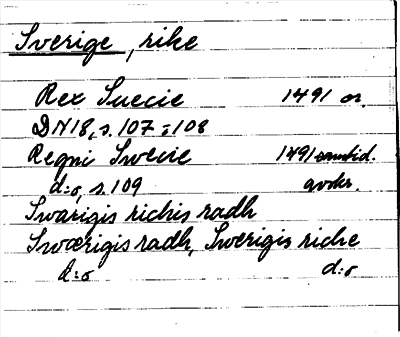 Sverige, rike
Rex Suecie 1491 or.
DN18, s. 107, 108
Regni Swecie 1491 samtid.
d:o, s. 109 avskr.
Swarigis richis radh
Swærigis radh, Swerigis riche
d:o d:o